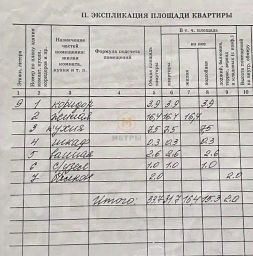 II. ЭКСПЛИКАЦИЯ ПЛОЩАДИ КВАРТИРЫ
Этаж, литера
Номер по плану
Назначение частей помещения: жилая комната, кухня и т. п.
Формула подсчета помещений
Общая площадь квартиры
В т. ч. площадь
квартиры
из нее
жилая
подсобная
1 2 3 4 5 6 7 8 9 10
9 1 коридор 3,9 3,9 3,9
2 жилая 16,4 16,4 16,4
3 кухня 7,5 7,5 7,5
4 шкаф 0.3 0.3 0.3
5 ванная 2.6 2.6 2.6
6 с/узел 1.0 1.0 1.0
7 балкон 2.0 2.0
МЕТРЫ
Итого: 33.7 31.7 16.4 15.3 2.0